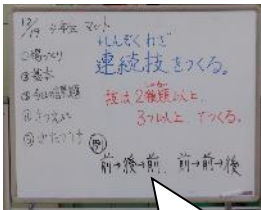 12/19 5年生 マット
①場づくり
②基本
③今日の課題
⑤かたづけ
れんぞくわざ
連続技をつくる。
技は2種類以上、
3つ以上でつくる。
例
前→後→前、前→前→後